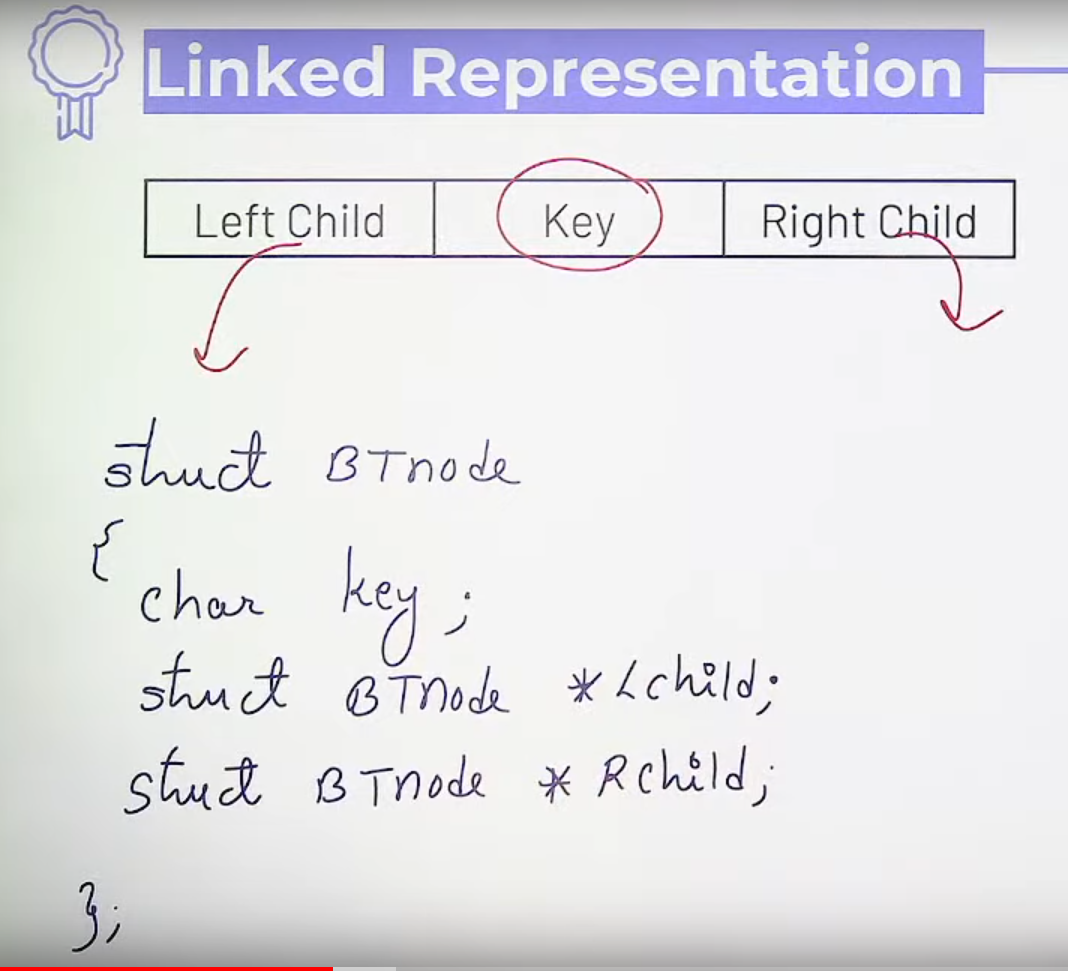 Linked Representation
Left Child Key Right Child
struct BTnode
{
char key;
struct BTnode *Lchild;
struct BTnode * Rchild;
};